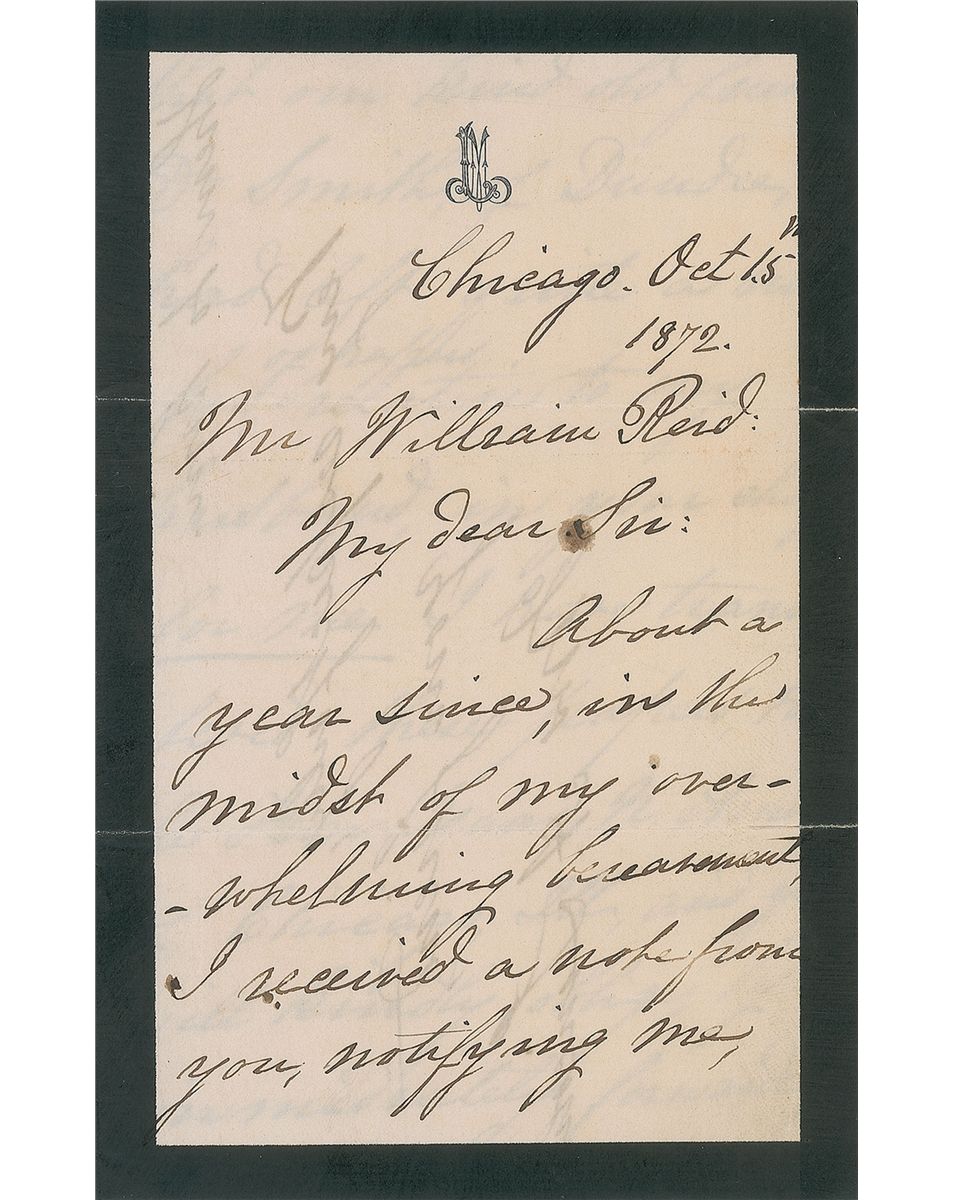 Chicago. Oct 15th
1872.
Mr William Reid:
My dear Sir:
About a
year since, in the
midst of my over-
-whelming bereavement,
I received a note from
you, notifying me,